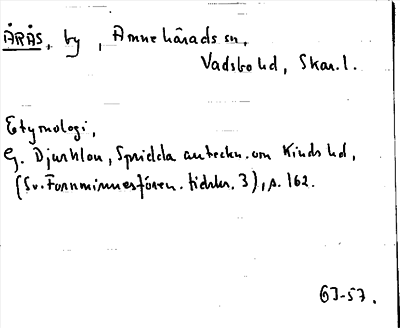 ÅRÅS, by, Amnehärads sn,
Vadsbo hd, Skar. l.
Etymologi,
G. Djurklou, Spridda anteckn. om Kinds hd,
(Sv. Fornminnesfören. tidskr. 3), s. 162.
63-57.